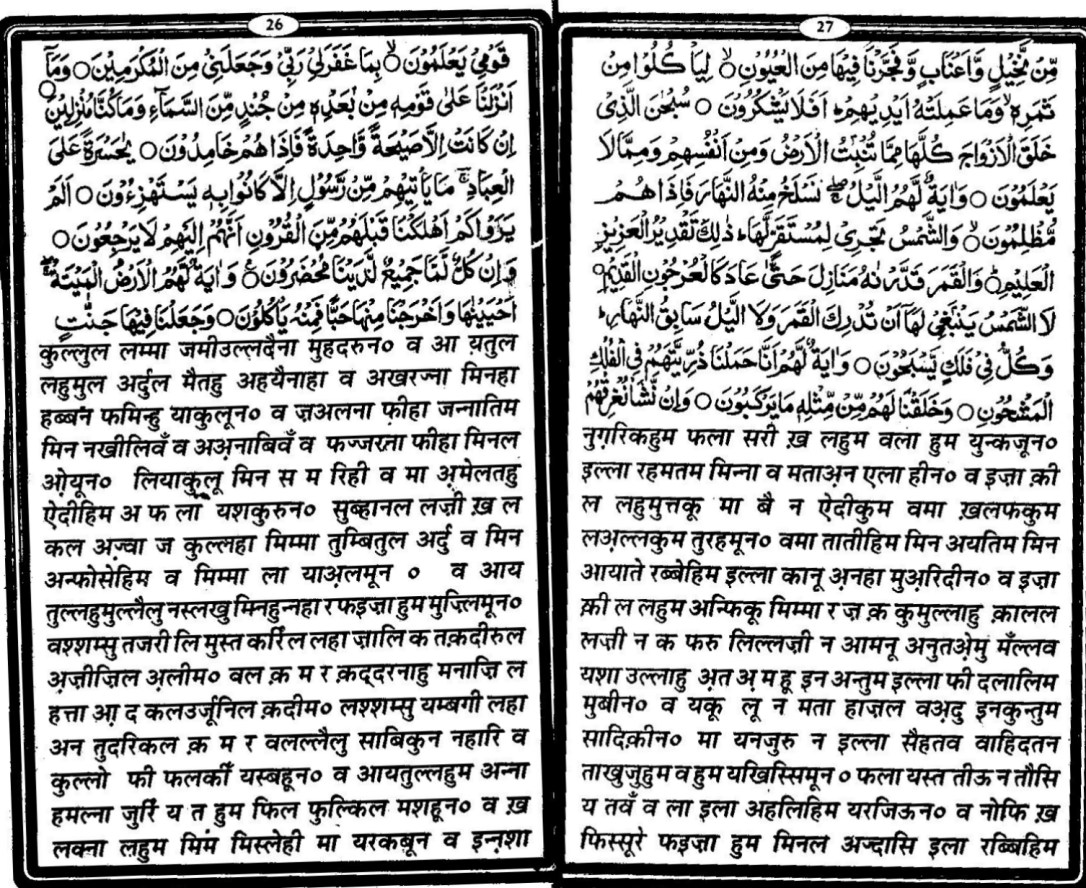 26
قَوْمِیْ یَعْلَمُوْنَ ۙ○ بِمَا غَفَرَلِیْ رَبِّیْ وَجَعَلَنِیْ مِنَ الْمُکْرَمِیْنَ ○ وَمَآ
اَنْزَلْنَا عَلٰی قَوْمِهٖ مِنْۢ بَعْدِهٖ مِنْ جُنْدٍ مِّنَ السَّمَآءِ وَمَاکُنَّا مُنْزِلِیْنَ ○
اِنْ کَانَتْ اِلَّا صَیْحَةً وَّاحِدَةً فَاِذَا هُمْ خَامِدُوْنَ ○ یٰحَسْرَةً عَلَی
الْعِبَادِ ۚ مَا یَاْتِیْهِمْ مِّنْ رَّسُوْلٍ اِلَّا کَانُوْا بِهٖ یَسْتَهْزِءُوْنَ ○ اَلَمْ
یَرَوْا کَمْ اَهْلَکْنَا قَبْلَهُمْ مِّنَ الْقُرُوْنِ اَنَّهُمْ اِلَیْهِمْ لَا یَرْجِعُوْنَ ○
وَ اِنْ کُلٌّ لَّمَّا جَمِیْعٌ لَّدَیْنَا مُحْضَرُوْنَ ○ وَ اٰیَةٌ لَّهُمُ الْاَرْضُ الْمَیْتَةُ ۖ
اَحْیَیْنٰهَا وَ اَخْرَجْنَا مِنْهَا حَبًّا فَمِنْهُ یَاْکُلُوْنَ ○ وَ جَعَلْنَا فِیْهَا جَنّٰتٍ
कुल्लुल लम्मा जमीउल्लदैना मुहदरुन० व आ यतुल
लहुमुल अर्दुल मैतहु अहयैनाहा व अखरज्ना मिनहा
हब्बन फमिन्हु याकुलून० व ज़अलना फ़ीहा जन्नातिम
मिन नखीलिवँ व अअ़नाबिवँ व फज्जरना फीहा मिनल
ओ़यून० लियाकुलू मिन स म रिही व मा अ़मेलतहु
ऐदीहिम अ फ ला यशकुरुन० सुब्हानल लज़ी ख़ ल
कल अज़्वा ज कुल्लहा मिम्मा तुम्बितुल अर्दु व मिन
अन्फोसेहिम व मिम्मा ला याअ़लमून ० व आय
तुल्लहुमुल्लैलु नस्लखु मिनहुन्नहा र फइज़ा हुम मुज़्लिमून०
वश्शम्सु तजरी लि मुस्त कर्रिल लहा ज़ालि क तक़दीरुल
अ़ज़ीज़िल अ़लीम० वल क़ म र क़द्दरनाहु मनाज़ि ल
हत्ता आ़ द कलउर्जूनिल क़दीम० लश्शम्सु यम्बगी लहा
अन तुदरिकल क़ म र वलल्लैलु साबिकुन नहारि व
कुल्लो फी फलकीँ यस्बहून० व आयतुल्लहुम अन्ना
हमल्ना जुर्रि य त हुम फिल फुल्किल मशहून० व ख़
लक्ना लहुम मिम मिस्लेही मा यरकबून व इन्नशा
27
مِّنْ نَّخِیْلٍ وَّ اَعْنَابٍ وَّ فَجَّرْنَا فِیْهَا مِنَ الْعُیُوْنِ ۙ○ لِیَاْکُلُوْا مِنْ
ثَمَرِهٖ ۙ وَمَا عَمِلَتْهُ اَیْدِیْهِمْ ؕ اَفَلَا یَشْکُرُوْنَ ○ سُبْحٰنَ الَّذِیْ
خَلَقَ الْاَزْوَاجَ کُلَّهَا مِمَّا تُنْۢبِتُ الْاَرْضُ وَمِنْ اَنْفُسِهِمْ وَمِمَّا لَا
یَعْلَمُوْنَ ○ وَاٰیَةٌ لَّهُمُ الَّیْلُ ۖ نَسْلَخُ مِنْهُ النَّهَارَ فَاِذَا هُمْ
مُّظْلِمُوْنَ ۙ○ وَالشَّمْسُ تَجْرِیْ لِمُسْتَقَرٍّ لَّهَا ؕ ذٰلِكَ تَقْدِیْرُ الْعَزِیْزِ
الْعَلِیْمِ ؕ○ وَالْقَمَرَ قَدَّرْنٰهُ مَنَازِلَ حَتّٰی عَادَ کَالْعُرْجُوْنِ الْقَدِیْمِ ○
لَا الشَّمْسُ یَنْۢبَغِیْ لَهَآ اَنْ تُدْرِكَ الْقَمَرَ وَلَا الَّیْلُ سَابِقُ النَّهَارِ ؕ
وَ کُلٌّ فِیْ فَلَكٍ یَّسْبَحُوْنَ ○ وَ اٰیَةٌ لَّهُمْ اَنَّا حَمَلْنَا ذُرِّیَّتَهُمْ فِی الْفُلْكِ
الْمَشْحُوْنِ ○ وَخَلَقْنَا لَهُمْ مِّنْ مِّثْلِهٖ مَا یَرْکَبُوْنَ ○ وَاِنْ نَّشَاْ نُغْرِقْهُمْ
नुग़रिकहुम फला सरी ख़ लहुम वला हुम युन्कजून०
इल्ला रहमतम मिन्ना व मताअ़न एला हीन० व इज़ा क़ी
ल लहुमुत्तकू मा बै न ऐदीकुम वमा ख़लफकुम
लअ़ल्लकुम तुरहमून० वमा तातीहिम मिन अयतिम मिन
आयाते रब्बेहिम इल्ला कानू अ़नहा मुअ़रिदीन० व इज़ा
क़ी ल लहुम अन्फिकू मिम्मा र ज़ क़ कुमुल्लाहु क़ालल
लज़ी न क फरु लिल्लज़ी न आमनू अनुतअ़ेमु मँल्लव
यशा उल्लाहु अ़त अ़ म हू इन अन्तुम इल्ला फी दलालिम
मुबीन० व यकू लू न मता हाज़ल वअ़दु इनकुन्तुम
सादिक़ीन० मा यनजुरु न इल्ला सैहतव वाहिदतन
ताखुजुहुम व हुम यखिस्सिमून ० फला यस्त तीऊ न तौसि
य तवँ व ला इला अहलिहिम यरजिऊन० व नोफि ख़
फिस्सूरे फइज़ा हुम मिनल अज्दासि इला रब्बिहिम